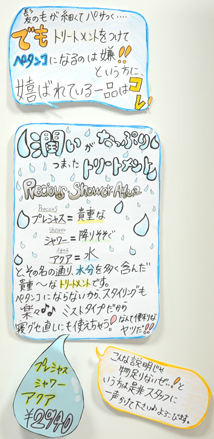 髪の毛が細くてパサつく・・・・
でもトリートメントをつけて
ペタンコになるのは嫌!!
という方に、
喜ばれている一品はコレ!
潤いがたっぷり
つまったトリートメント
Precious Shower Aqua
プレシャス=貴重な
シャワー=降りそそぐ
アクア=水
と、その名の通り、水分を多く含んだ
貴重〜なトリートメントです。
ペタンコにならないから、スタイリングも
楽々♪♪ ミストタイプだから
寝グセ直しにも使えちゃう!なんて便利な
ヤツだ!!
プレシャス
シャワー
アクア
¥2940
こんな説明じゃ
物足りないぜ。!と
いう方は是非スタッフに
一声かけて下さいね。